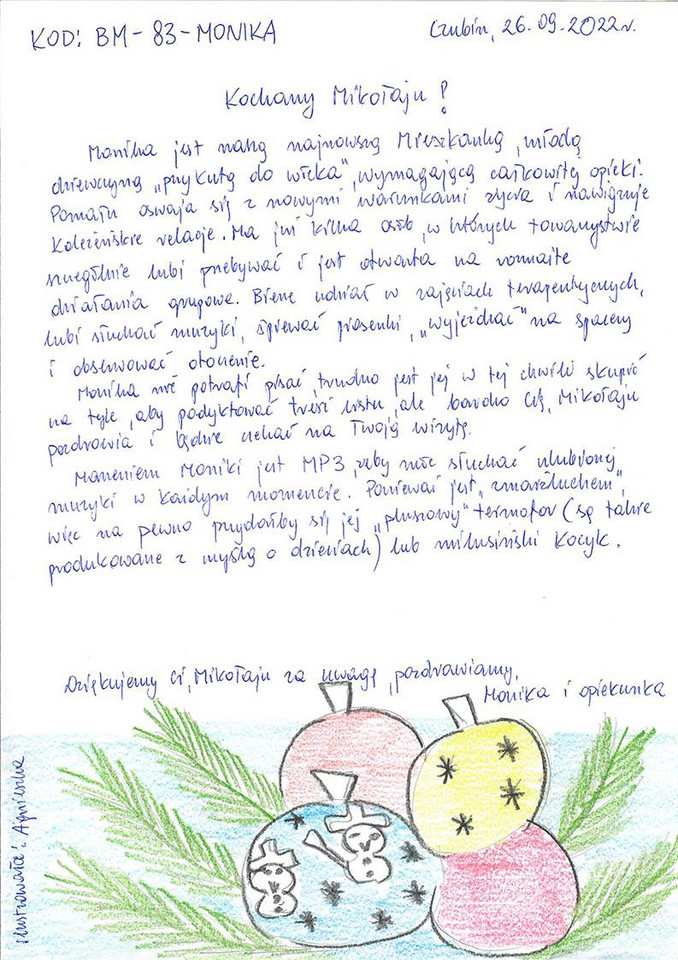 KOD: BM-83-MONIKA
Czubin, 26.09.2022r.
Kochany Mikołaju!
Monika jest naszą najnowszą Mieszkanką, młodą
dziewczyną „przykutą do wózka”, wymagającą całkowitej opieki.
Pomału oswaja się z nowymi warunkami życia i nawiązuje
koleżeńskie relacje. Ma już kilka osób, w których towarzystwie
szczególnie lubi przebywać i jest otwarta na rozmaite
działania grupowe. Bierze udział w zajęciach terapeutycznych,
lubi słuchać muzyki, śpiewać piosenki, „wyjeżdżać” na spacery
i obserwować otoczenie.
Monika nie potrafi pisać, trudno jest jej w tej chwili skupić
na tyle, aby podyktować treść listu, ale bardzo Cię, Mikołaju
pozdrawia i będzie czekać na Twoją wizytę.
Marzeniem Moniki jest MP3, żeby móc słuchać ulubionej
muzyki w każdym momencie. Ponieważ jest „zmarźluchem”,
więc na pewno przydałby się jej „pluszowy” termofor (są także
produkowane z myślą o dzieciach) lub milusiński kocyk.
Dziękujemy Ci, Mikołaju za uwagę, pozdrawiamy,
Monika i opiekunka
ilustrowała: Agnieszka